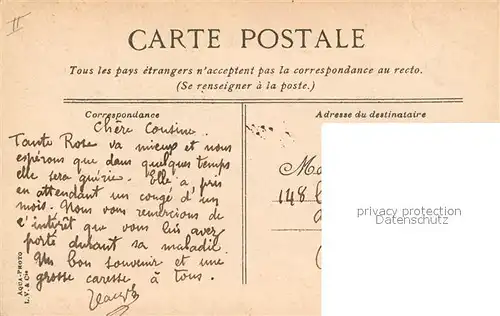 II
CARTE POSTALE
Tous les pays étrangers n'acceptent pas la correspondance au recto.
(Se renseigner à la poste.)
Correspondance
Adresse du destinataire
Chère Cousine.
Tante Rose va mieux et nous
espérons que dans quelques temps
elle sera guérie. Elle a pris
en attendant un congé d'un
mois. Nous vous remercions de
l'intérêt que vous lui avez
porté durant sa maladie.
Un bon souvenir et une
grosse caresse à tous.
148
privacy protection
Datenschutz
AQUA-PHOTO
L.V. & Cie